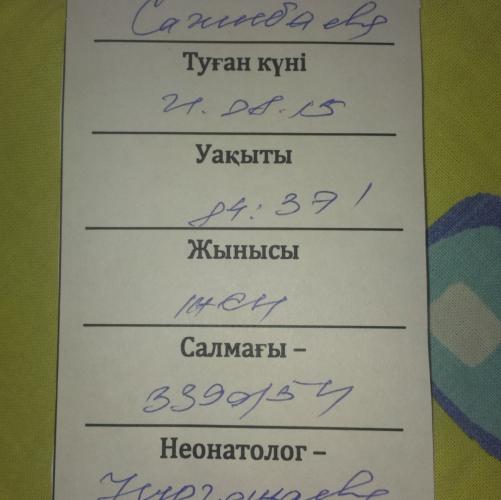 Сагинбаева
Туған күні
21.08.15
Уақыты
04:37
Жынысы
жен
Салмағы –
3390/54
Неонатолог –